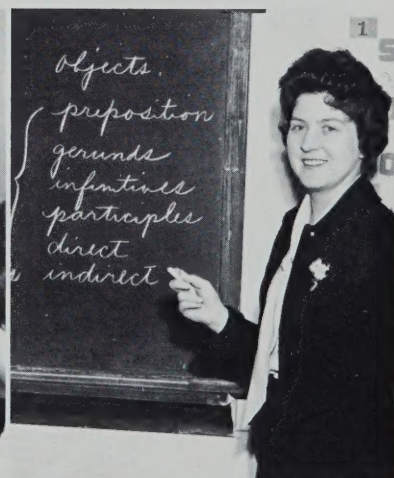 objects.
preposition
gerunds
infinitives
participles
direct
indirect
1